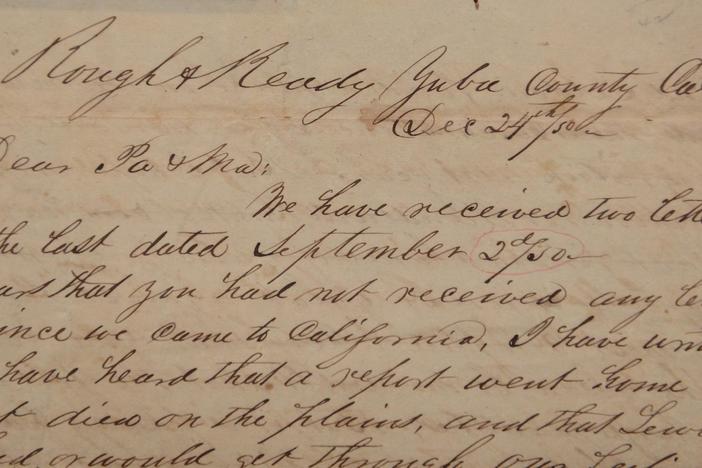 Rough & Ready Yuba County Ca
Dec 24th/50
Dear Pa & Ma:
We have received two lett
the last dated September 2d/50
ars that you had not received any le
ince we came to California, I have
have heard that a report went home
died on the plains, and that Lew
or would get through, our